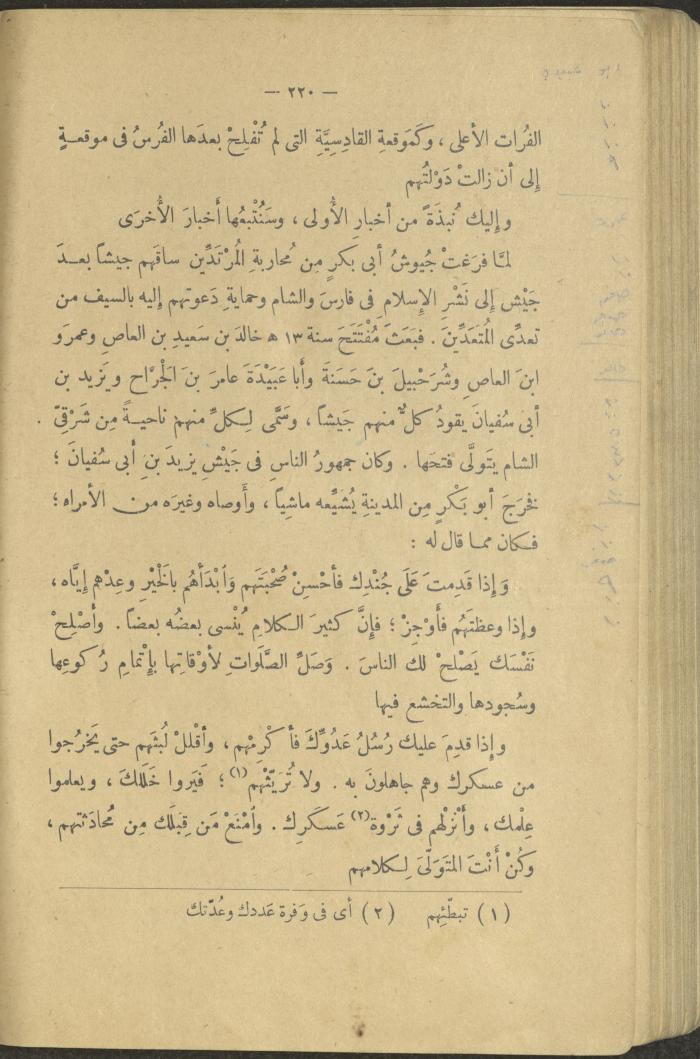 — ٢٢٠ —
الفُرات الأعلى ، وكَمَوقعةِ القادِسِيَّةِ التى لم تُفْلِحْ بعدَها الفُرسُ فى موقعةٍ
إلى أن زالتْ دَوْلتُهم
وإليك نُبذَةً من أخبارِ الأُولى ، وسَنُتْبِعُها أَخبارَ الأُخرَى
لمَّا فرَغتْ جُيوشُ أبى بَكرٍ مِن مُحاربةِ المُرْتَدِّين ساقَهم جيشًا بعــدَ
جَيْشٍ إلى نَشْرِ الإسلامِ فى فارسَ والشام وحمايةِ دَعوتهم إليه بالسيف من
تعدِّى المُتَعَدِّينَ . فبَعَثَ مُفْتَتَحَ سنة ١٣ ﻫ خالدَ بن سَعيدِ بن العاصِ وعمرَو
ابنَ العاصِ وشُرَحْبِيلَ بنَ حَسَنَةَ وأَبا عُبَيْدَةَ عامرَ بنَ الجَرَّاح ويَزيد بن
أبى سُفيانَ يقودُ كلٌّ منهم جَيشًا ، وسَمَّى لِـكلٍّ منهم ناحيــةً مِن شَرْقىّ
الشام يَتولَّى فتحَها . وكان جمهورُ الناسِ فى جَيْشِ يزيدَ بنِ أبى سُفيانَ ؛
فخَرَجَ أبو بَكْرٍ مِن المدينةِ يُشيِّعه ماشِياً ، وأَوصاه وغيرَه من الأمراء ؛
فـكان ممـا قال له :
وَإذا قَدِمتَ عَلَى جُندِك فأحْسِنْ صُحْبَتَهم وَٱبْدَأْهُم بالخَيْرِ وعِدْهم إيَّاه ،
وإذا وعظتَهُم فأَوْجِزْ ؛ فإنَّ كثيرَ الـكلامِ يُنْسِى بعضُه بعضًا . وأَصْلِحْ
نَفْسَك يَصْلُحْ لك الناسَ . وَصَلِّ الصَّلَواتِ لأَوْقاتِها بإتْمامِ رُكوعِها
وسُجودها والتخشع فيها
وإذا قدِمَ عليك رُسُلُ عَدُوِّكَ فأكْرِمْهم ، وأقْلِلْ لُبثَهم حتى يَخرُجوا
من عسكرك وهم جاهلونَ به . ولا تُرَيِّثْهم (١) ؛ فَيَروا خَلَلكَ ، ويعلموا
عِلْمك ، وأَنْزِلْهم فى ثَرْوة (٢) عَسكَرِك . وٱمْنَعْ مَن قِبَلَك مِن مُحادَثتهم ،
وكُنْ أَنْتَ المُتَوَلّىَ لِـكلامهم
(١) تبطّئهم (٢) أى فى وَفرة عَددك وعُدّتك